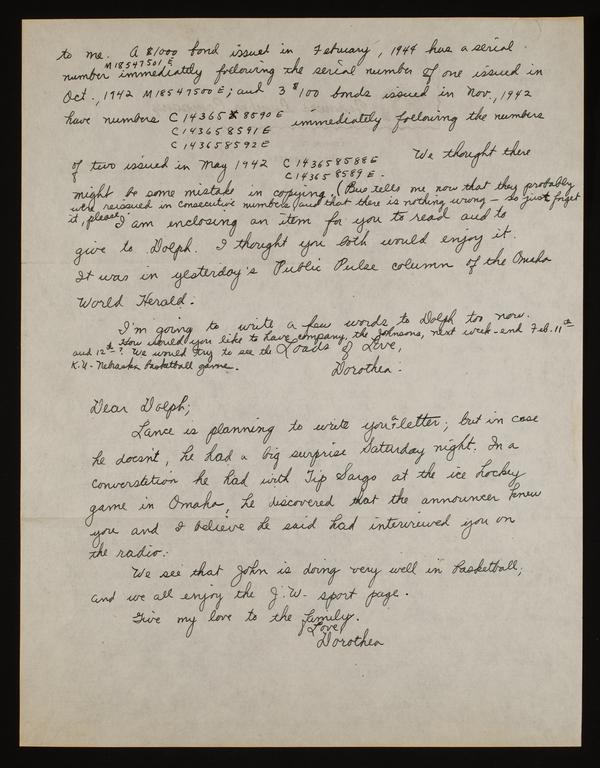 to me. A $1000 bond issued in February, 1944 has a serial
M18547501E
number immediately following the serial number of one issued in
Oct., 1942 M18547500E; and 3 $100 bonds issued in Nov., 1942
have numbers C143658590E immediately following the numbers
C143658591E
C143658592E
of two issued in May 1942 C143658588E We thought there
C143658589E.
might be some mistake in copying. (Bus tells me now that they probably
were reissued in consecutive numbers and that there is nothing wrong - so just forget
it, please.)
I am enclosing an item for you to read and to
give to Dolph. I thought you both would enjoy it.
It was in yesterday's Public Pulse column of the Omaha
World Herald.
I'm going to write a few words to Dolph too now.
How would you like to have company, the Johnsons, next week-end Feb. 11th
and 12th? We would try to see the
K.U-Nebraska basketball game.
Loads of Love,
Dorothea.
Dear Dolph;
Lance is planning to write you a letter, but in case
he doesn't, he had a big surprise Saturday night. In a
converstation he had with Tip Sargo at the ice hockey
game in Omaha, he discovered that the announcer knew
you and I believe he said had interviewed you on
the radio.
We see that John is doing very well in basketball,
and we all enjoy the J.W. sport page.
Give my love to the family.
Love,
Dorothea